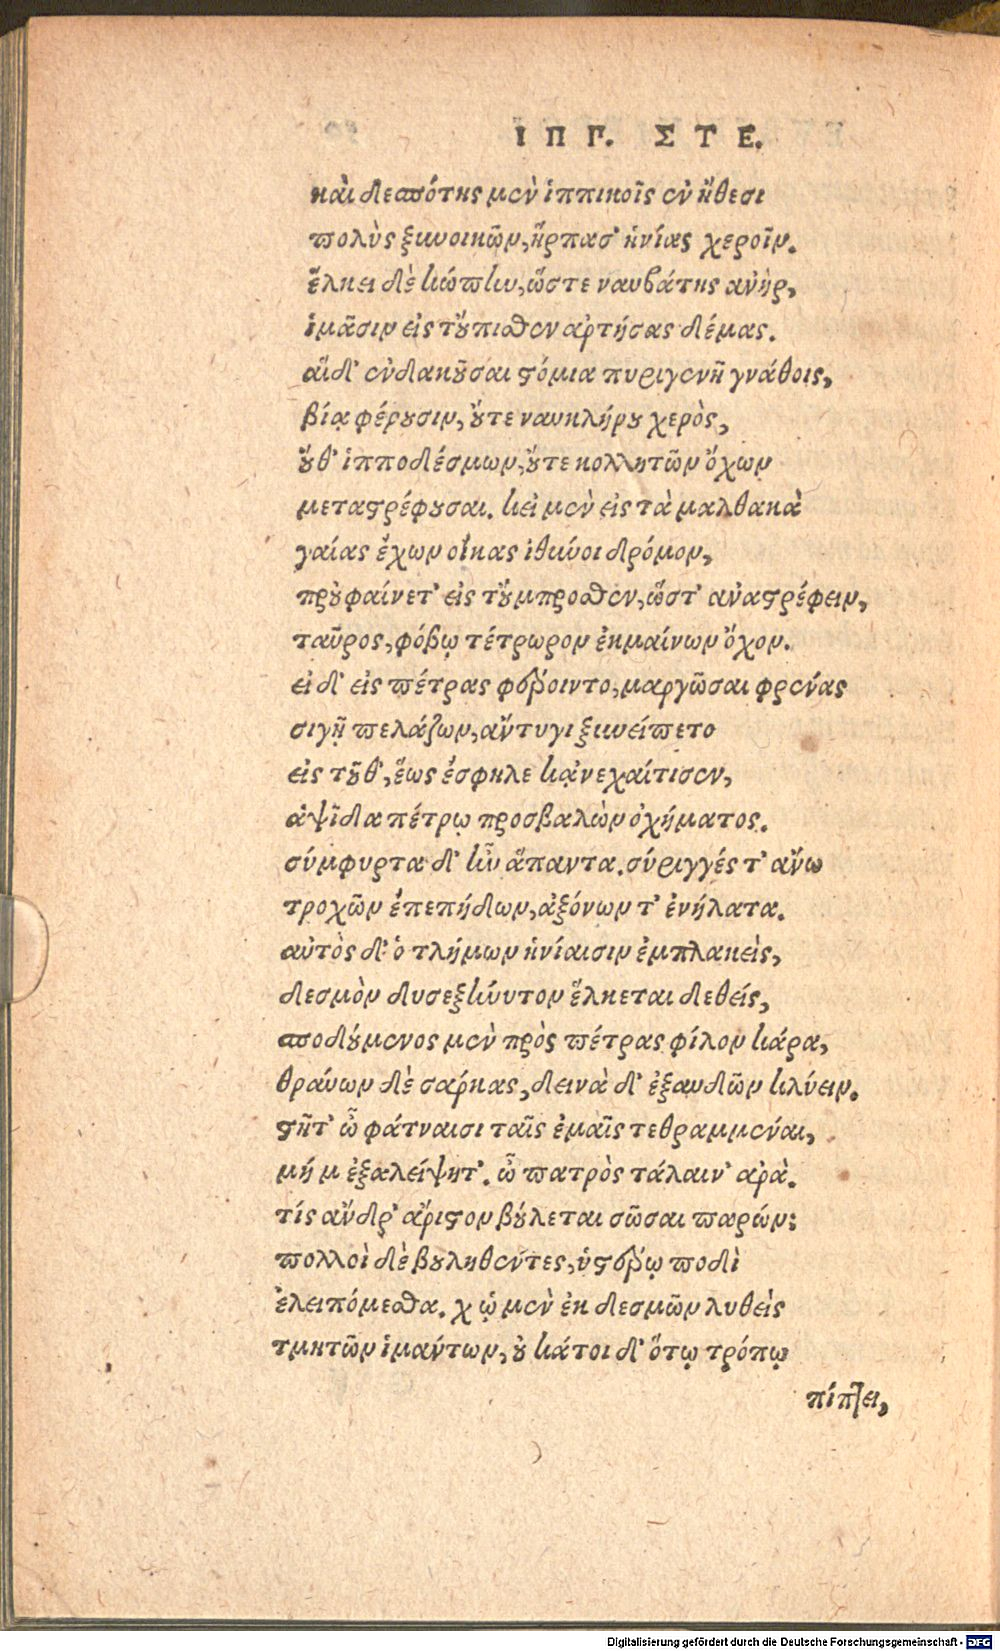 ΙΠΠ. ΣΤΕ.
καὶ δεσπότης μὲν ἱππικοῖς ἐν ἤθεσι
πολὺς ξυνοικῶν, ἥρπασ' ἡνίας χεροῖν.
ἕλκει δὲ κώπην, ὥστε ναυβάτης ἀνὴρ,
ἱμᾶσιν εἰς τοὔπισθεν ἀρτήσας δέμας.
αἵδ' ἐνδακοῦσαι στόμια πυριγενῆ γνάθοις,
βίᾳ φέρουσιν, οὔτε ναυκλήρου χερὸς,
οὔθ' ἱπποδέσμων, οὔτε κολλητῶν ὄχων
μεταστρέφουσαι. κεἰ μὲν εἰς τὰ μαλθακὰ
γαίας ἔχων οἴκας ἰθύνοι δρόμον,
προὐφαίνετ' εἰς τοὔμπροσθεν, ὥστ' ἀναστρέφειν,
ταῦρος, φόβῳ τέτρωρον ἐκμαίνων ὄχον.
εἰ δ' εἰς πέτρας φέροιντο, μαργῶσαι φρένας
σιγῇ πελάζων, ἄντυγι ξυνείπετο
εἰς τοῦθ', ἕως ἔσφηλε κἀνεχαίτισεν,
ἁψῖδα πέτρῳ προσβαλὼν ὀχήματος.
σύμφυρτα δ' ἦν ἅπαντα. σύριγγές τ' ἄνω
τροχῶν ἐπεπήδων, ἀξόνων τ' ἐνήλατα.
αὐτὸς δ' ὁ τλήμων ἡνίαισιν ἐμπλακεὶς,
δεσμὸν δυσεξήνυτον ἕλκεται δεθείς,
σποδούμενος μὲν πρὸς πέτρας φίλον κάρα,
θραύων δὲ σάρκας, δεινὰ δ' ἐξαυδῶν κλύειν.
στῆτ' ὦ φάτναισι ταῖς ἐμαῖς τεθραμμέναι,
μή μ ἐξαλείψητ'. ὦ πατρὸς τάλαιν' ἀρὰ.
τίς ἄνδρ' ἄριστον βούλεται σῶσαι παρών;
πολλοὶ δὲ βουληθέντες, ὑστέρῳ ποδὶ
ἐλειπόμεσθα. χ ᾠ μὲν ἐκ δεσμῶν λυθεὶς
τμητῶν ἱμάντων, οὐ κάτοι δ' ὅτῳ τρόπῳ
πίπτει,
Digitalisierung gefördert durch die Deutsche Forschungsgemeinschaft - DFG